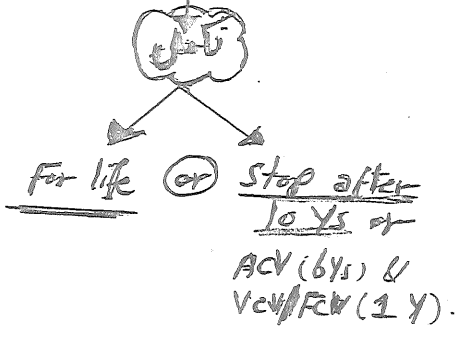 For life or Stop after
10 Ys or
ACV (6Ys) &
VCV/FCV (1 Y).